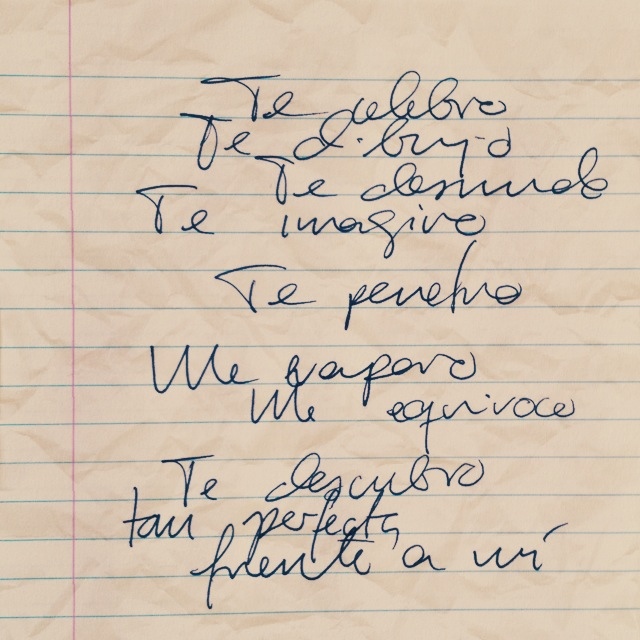 Te celebro
Te dibujo
Te desnudo
Te imagino
Te penetro
Me evaporo
Me equivoco
Te descubro
tan perfecta
frente a mí